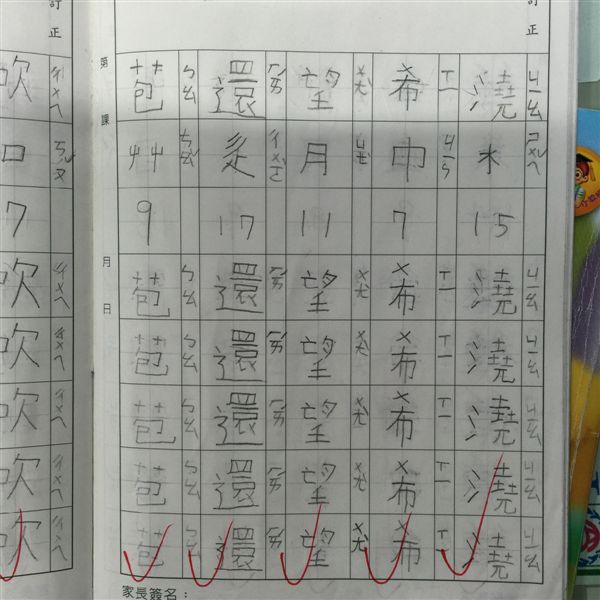 澆 ㄐㄧㄠ
水 ㄕㄨㄟˇ
15
澆 ㄐㄧㄠ
澆 ㄐㄧㄠ
澆 ㄐㄧㄠ
澆 ㄐㄧㄠ
澆 ㄐㄧㄠ
希 ㄒㄧ
巾 ㄐㄧㄣ
7
希 ㄒㄧ
希 ㄒㄧ
希 ㄒㄧ
希 ㄒㄧ
希 ㄒㄧ
望 ㄨㄤˋ
月 ㄩㄝˋ
11
望 ㄨㄤˋ
望 ㄨㄤˋ
望 ㄨㄤˋ
望 ㄨㄤˋ
望 ㄨㄤˋ
還 ㄏㄞˊ
辵 ㄔㄨㄛˋ
17
還 ㄏㄞˊ
還 ㄏㄞˊ
還 ㄏㄞˊ
還 ㄏㄞˊ
還 ㄏㄞˊ
苞 ㄅㄠ
艸 ㄘㄠˇ
9
苞 ㄅㄠ
苞 ㄅㄠ
苞 ㄅㄠ
苞 ㄅㄠ
苞 ㄅㄠ
第 課 月 日
家長簽名：
訂正
訂正
吹 ㄔㄨㄟ
口 ㄎㄡˇ
7
吹 ㄔㄨㄟ
吹 ㄔㄨㄟ
吹 ㄔㄨㄟ
吹 ㄔㄨㄟ
吹 ㄔㄨㄟ